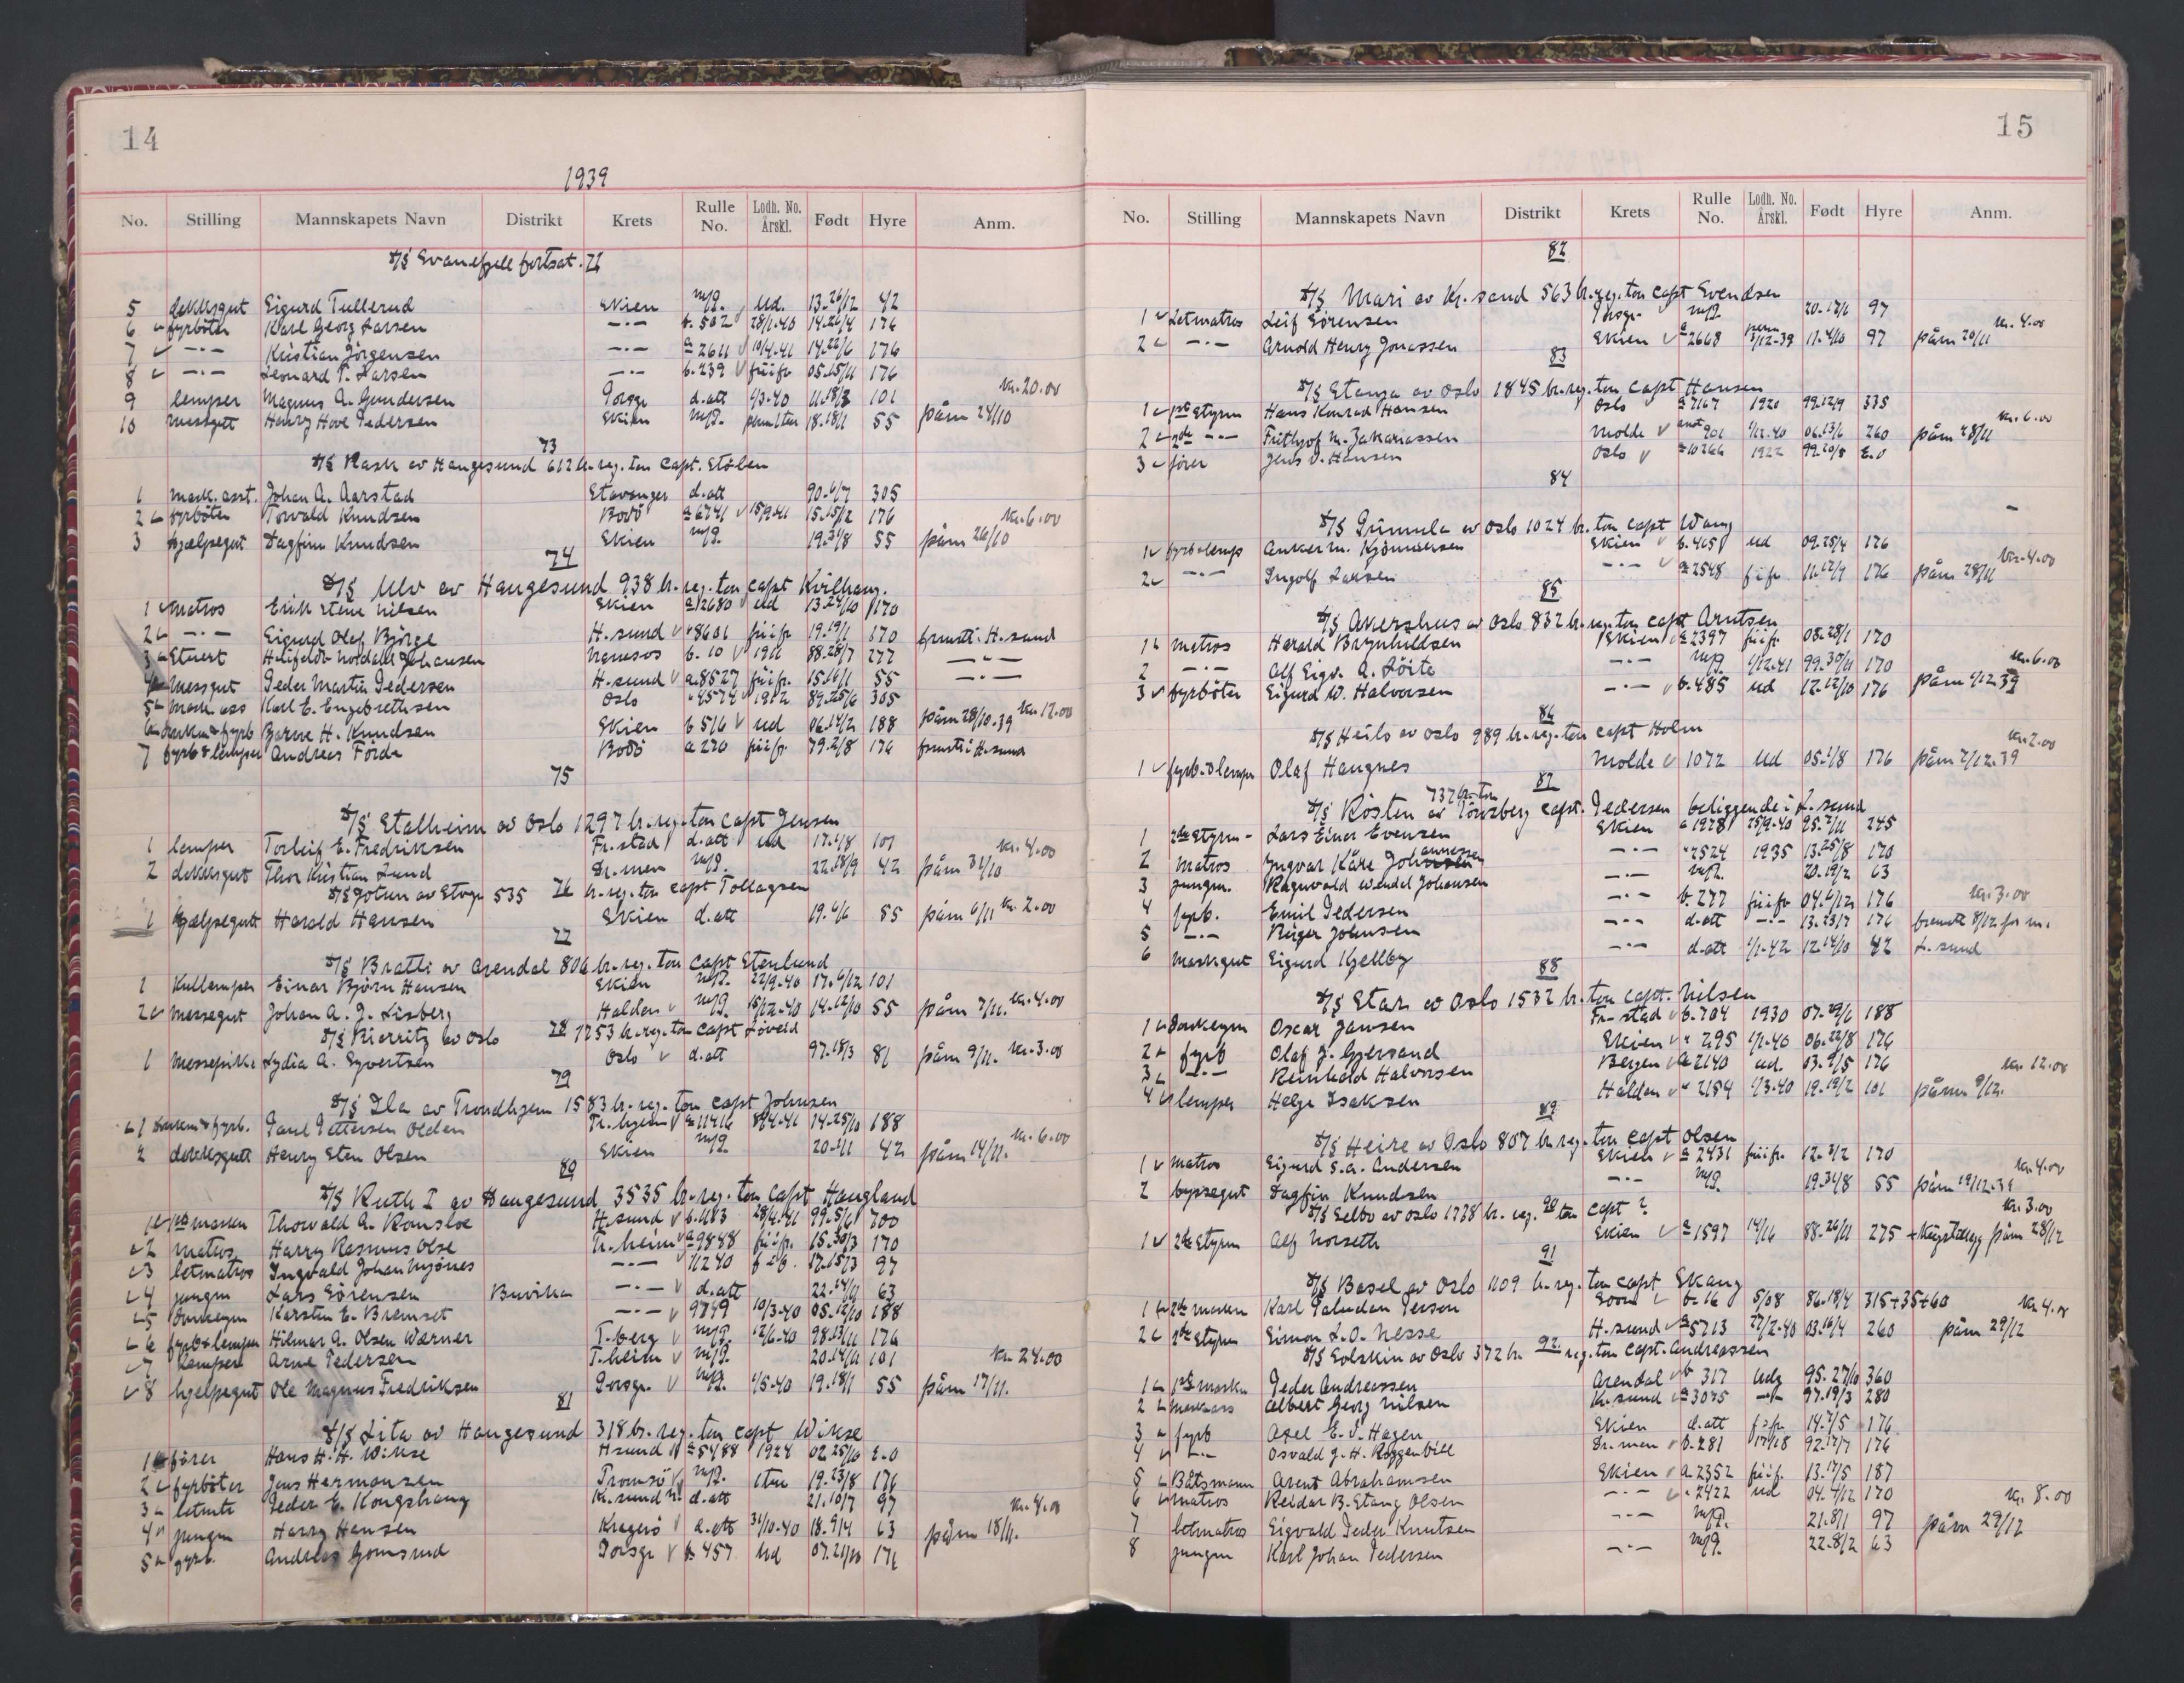 14
1939
No. Stilling Mannskapets Navn Distrikt Krets Rulle No. Lodh. No. Årskl. Født Hyre Anm.
D/S Svanefjell fortsat. 72
5 dekksgut Sigurd Tullerud Skien m/P. Ud. 13.26/12 42
6 fyrböter Karl Georg Larsen —·— b. 502 28/1-40 14.26/4 176
7 —·— Kristian Jörgensen —·— a 2611 10/4-41 14.22/6 176
8 —·— Leonard T. Larsen —·— b. 239 füifr 05.15/11 176
9 lemper Magnus A. Gundersen Porsgr d.att 1/3-40 11.18/3 101 kr. 20.00
10 messgutt Henry Hove Pedersen Skien m/P. 18.18/1 55 påm 24/10
73
D/S Rask av Haugesund 612 br.reg.ton Capt. Stölen
1 mask.asst. Johan A. Aarstad Stavanger d.att 90.6/7 305
2 fyrböter Torvald Knudsen Bodö a 6741 15/9-41 15.15/2 176 kr. 6.00
3 hjælpegut Dagfinn Knudsen Skien m/P. 19.31/8 55 påm 26/10
74
D/S Ulv av Haugesund 938 br.reg.ton capt Kvilhaug.
1 matros Erik Stene Nilsen Skien a 2680 ud 13.24/10 170
2 —·— Sigurd Olaf Björge H.sund 8601 füifr 19.19/1 170 frmstt i H.sund
3 Stuert Johansen Namsos b. 10 1911 88.28/7 277 —"—
4 messgut Peder Martin Pedersen H.sund a.8527 füifr. 15.16/1 55 —·—
5 Mask ass Karl E. Engebrethsen Oslo 4574 1912 89.25/6 305
6 Donkm & fyrb Barne H. Knudsen Skien b 516 ud 06.14/2 188 påm 28/10.39 kr. 12.00
7 fyrb & lemper Andreas Förde Bodö a 220 füifr. 79.2/8 176 frmstt i H.sund
75
D/S Stalheim av Oslo 1297 br.reg.ton Capt Jensen
1 lemper Torleif E. Fredriksen Fr.stad d.att ud 17.1/8 101 kr. 4.00
2 dekksgut Thor Kristian Lund Dr.men m/P. 22.18/9 42 påm 31/10
D/S Jotun av Stvgr 535 76 br.reg.ton Capt Tollagsen
1 hjælpegutt Harald Hansen Skien d.att 19.6/6 55 påm 6/11 kr. 2.00
77
D/S Bratli av Arendal 806 br.reg.ton Capt Stenlund
1 Kullemper Einar Björn Hansen Skien m/P. 22/9-40 17.6/12 101
2 messegut Johan A. J. Lisberg Halden m/P. 15/12-40 14.12/10 55 påm 7/11. kr. 4.00
D/S Biarritz av Oslo 78 1753 br.reg.ton Capt Lövold
1 messepike Lydia A. Syvertsen Oslo d.att 97.18/3 81 påm 9/11. kr. 3.00
79
D/S Ila av Trondhjem 1583 br.reg.ton Capt Johnsen
1 Donkm & fyrb. Paul Pettersen Olden Tr.hjem a 11416 8/4-41 14.25/10 188
2 dekksgutt Henry Sten Olsen Skien m/P. 20.1/11 42 påm 14/11. kr. 6.00
80
D/S Ruth I av Haugesund 3535 br.reg.ton Capt Haugland
1 1ste maskn Thorvald A. Ramsloe H.sund b.483 28/4-41 99.5/6 700
2 matros Harry Rasmus Olse Tr.heim a 9888 füifr. 15.30/3 170
3 letmatros Ingvald Johan Mjönes —·— 11240 fifr. 17.15/3 97
4 jungm Lars Sörensen Buvika —·— d.att 22.14/11 63
5 Donkeym Karsten E. Bremset —·— 9749 10/3-40 05.12/10 188
6 fyrb & lemper Hilmar A. Olsen Wærner T.berg m/P. 12/6-40 98.13/11 176
7 Lemper Arne Pedersen T.heim m/P. 20.14/11 101 kr. 24.00
8 hjelpegut Ole Magnus Fredriksen Porsgr. m/P. 1/5-40 19.18/1 55 påm 17/11.
81
D/S Lita av Haugesund 318 br.reg.ton capt Wikse
1 förer Hans H. H. Wikse H.sund a 5488 1924 02.25/10 E.O
2 fyrböter Jens Hermansen Tromsö m/P. 19.23/8 176
3 letmtr Peder E. Kongshaug Kr.sund N. d.att 21.10/7 97 kr. 4.00
4 jungm Harry Hansen Kragerö d.att 31/10-40 18.9/4 63 påm 18/11.
5 fyrb. Andreas Gomsrud Porsgr b 457 Ud 07.21/10 176
15
No. Stilling Mannskapets Navn Distrikt Krets Rulle No. Lodh. No. Årskl. Født Hyre Anm.
82
D/S Mari av Kr.sand 563 br.reg.ton Capt Svendsen
1 Letmatros Leif Sörensen Porsgr. m/P. 20.17/1 97 kr. 4.00
2 —·— Arnold Henry Jonassen Skien a 2668 1/12-39 11.4/10 97 påm 20/11
83
D/S Stanja av Oslo 1845 br.reg.ton Capt Hansen
1 1ste Styrm Hans Konrad Hansen Oslo a 7167 1920 99.12/9 335 kr. 6.00
2 2de —·— Frithjof M. Zakariassen Molde 201 1/12-40 06.13/6 260 påm 28/11
3 förer Jens O. Hansen Oslo a 10266 1922 99.20/8 E.O
84
D/S Gunnula av Oslo 1024 br.ton Capt Wang
1 fyrb & lemp Anker M. Kjönnersen Skien b.465 ud 09.25/4 176 kr. 4.00
2 —·— Ingolf Larsen —·— a 2548 fifr 11.12/9 176 påm 28/11
85
D/S Akershus av Oslo 832 br.reg.ton Capt Arntsen
1 matros Harald Brynhildsen Skien a 2397 füifr 08.28/1 170
2 —·— Alf Sigv. A. Löite —·— m/P. 1/12-41 99.30/11 170 kr. 6.00
3 fyrböter Sigurd W. Halvorsen —·— b.485 ud 12.12/10 176 påm 1/12 39
86
D/S Heilo av Oslo 989 br.reg.ton capt Holm
1 fyrb. & lemper Olaf Haugnes Molde 1072 Ud 05.1/8 176 påm 7/12.39 kr. 2.00
87
737 br.ton
D/S Rösten av Tönsberg Capt. Pedersen beliggende i L.sund
1 2de Styrm- Lars Einar Evensen Skien a 1978 25/9-40 95.7/11 245
2 Matros Ingvar Kåre Johannessen —·— 2524 1935 13.25/8 170
3 jungm. Ragnvald Wendel Johansen —·— m/P. 20.19/2 63
4 fyrb. Emil Pedersen —·— b. 277 füifr 04.6/12 176 kr. 3.00
5 —·— Birger Johnsen —·— d.att —·— 13.23/7 176 8/12 for m.
6 Maskgut Sigurd Kjellby —·— d.att 1/1-42 12.14/10 42 L.sund
88
D/S Star av Oslo 1532 br.ton capt. Nilsen
1 Donkeym Oscar Jansen Fr.stad b.704 1930 07.29/6 188
2 fyrb Olaf J. Gjersand Skien 295 1/1-40 06.22/8 176
3 —·— Reinhold Halvorsen Bergen a 2140 ud. 03.9/5 176 kr. 12.00
4 lemper Helge Isaksen Halden 2184 1/3-40 19.19/2 101 påm 9/12.
89
D/S Heire av Oslo 807 br.reg.ton Capt Olsen
1 matros Sigurd S.A. Andersen Skien a 2431 füifr. 12.3/2 170 kr. 4.00
2 byssegut Dagfin Knudsen —·— m/P. 19.31/8 55 påm 19/12.39
D/S Selbo av Oslo 1778 br.reg. 90 ton capt ? kr. 3.00
1 2de Styrm Alf Norseth Skien a 1597 14/16 88.26/11 275 + krigstillegg påm 28/12
91
D/S Basel av Oslo 1109 br.reg.ton Capt Skaug
1 2de maskn Karl Paludan Person Soon b. 16 5/08 86.18/4 315+35+60 kr. 4.00
2 2de Styrm Simon L.O. Nesse H.sund a 5713 27/2-40 03.16/4 260 påm 29/12
D/S Solskin av Oslo 372 br. 92. reg.ton Capt. Andreassen
1 1ste maskn Peder Andreassen Arendal b 317 Udg 95.27/10 360
2 maskass Albert Georg Nilsen Kr.sund a 3075 —·— 97.19/3 280
3 fyrb Axel E. V. Hagen Skien d.att fifr. 14.7/5 176
4 —·— Osvald J. H. Roggenbill Dr.men b.281 17/18 92.12/7 176
5 Båtsmann Arent Abrahamsen Skien a.2352 füifr. 13.17/5 187
6 matros Reidar B. Stang Olsen —·— 2422 ud 04.4/12 170 kr. 8.00
7 letmatros Sigvald Peder Knutsen —·— m/P. 21.8/1 97 påm 29/12
8 jungm Karl Johan Pedersen —·— m/P. 22.8/2 63